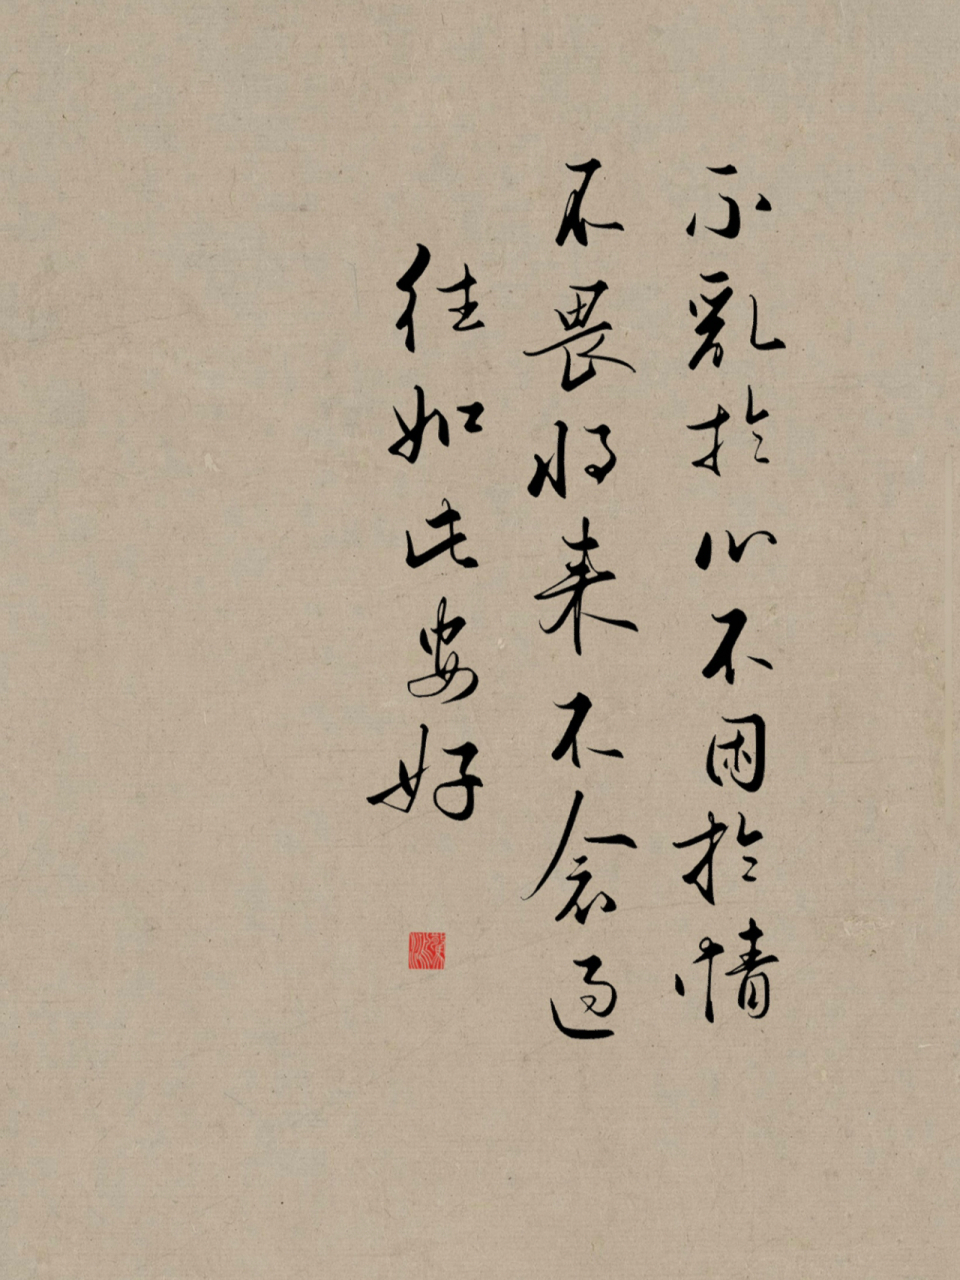 不亂於心不困於情
不畏将来不念過
往如此安好